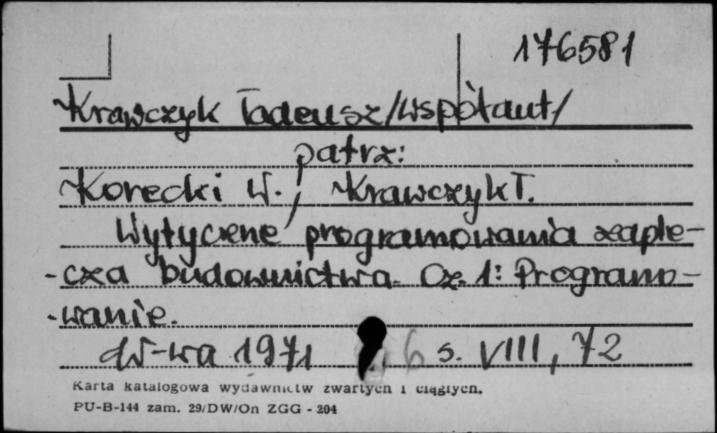 176581
Krawczyk Tadeusz /współaut/
patrz:
Korecki W., Krawczyk T.
Wytyczne programowania zaple-
-cza budownictwa. Cz. 1: Programo-
-wanie.
W-wa 1971 s. VIII, 72
Karta katalogowa wydawnictw zwartych i ciągłych.
PU-B-144 zam. 29/DW/On ZGG - 204